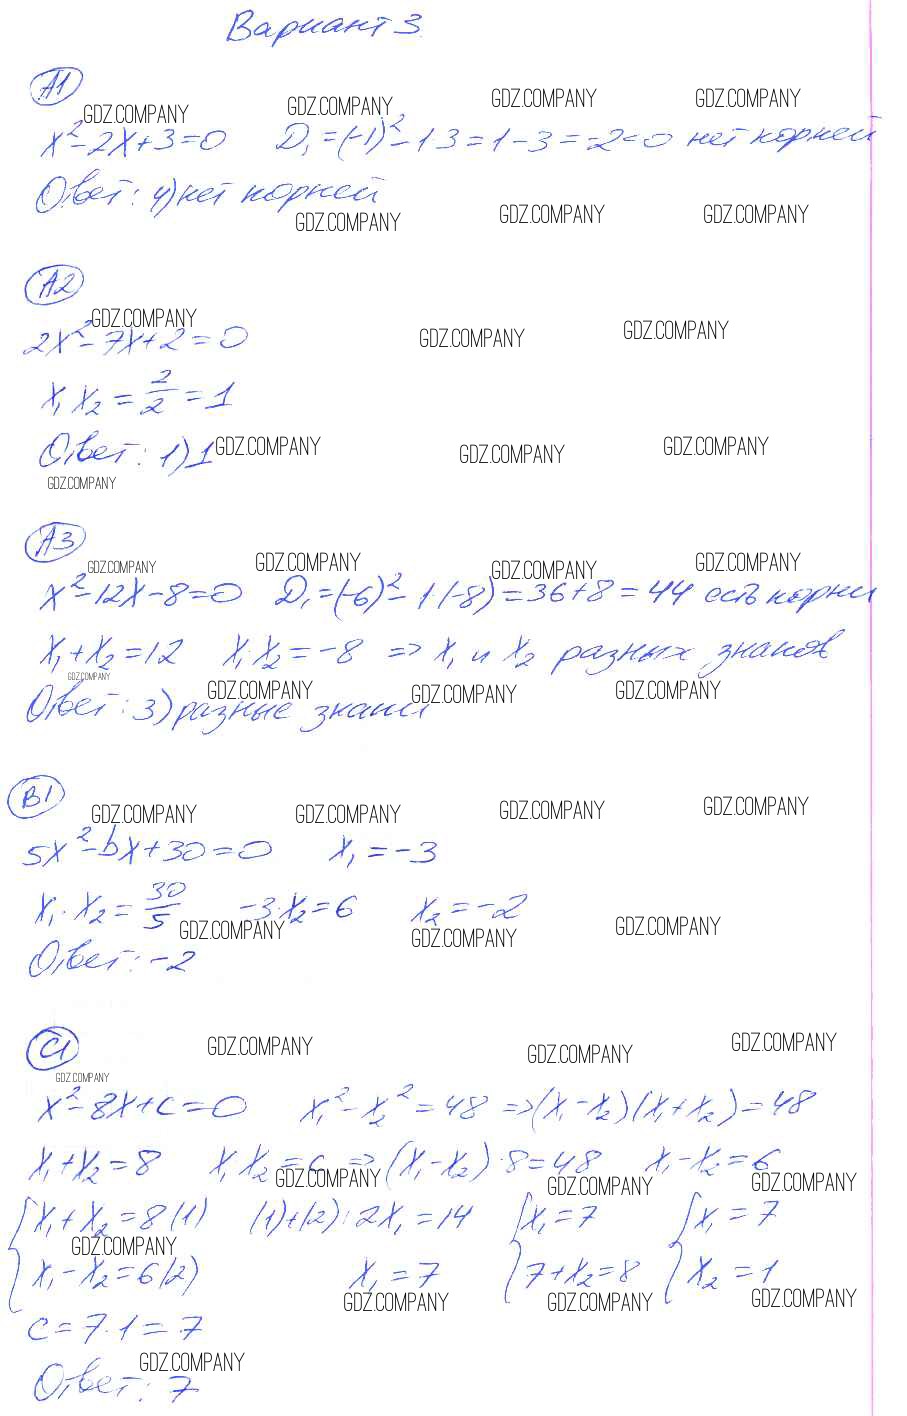 Вариант 3
А1
GDZ.COMPANY GDZ.COMPANY GDZ.COMPANY GDZ.COMPANY
x²-2x+3=0 D₁=(-1)²-1·3=1-3=-2<0 нет корней
Ответ: 4) нет корней
GDZ.COMPANY GDZ.COMPANY GDZ.COMPANY
А2
GDZ.COMPANY GDZ.COMPANY GDZ.COMPANY
2x²-7x+2=0
x₁x₂=2/2=1
Ответ: 1) 1
GDZ.COMPANY GDZ.COMPANY GDZ.COMPANY
GDZ.COMPANY
А3
GDZ.COMPANY GDZ.COMPANY GDZ.COMPANY GDZ.COMPANY
x²-12x-8=0 D₁=(-6)²-1·(-8)=36+8=44 есть корни
x₁+x₂=12 x₁x₂=-8 => x₁ и x₂ разных знаков
GDZ.COMPANY GDZ.COMPANY GDZ.COMPANY GDZ.COMPANY
Ответ: 3) разные знаки
В1
GDZ.COMPANY GDZ.COMPANY GDZ.COMPANY GDZ.COMPANY
5x²-bx+30=0 x₁=-3
x₁·x₂=30/5 -3·x₂=6 x₂=-2
GDZ.COMPANY GDZ.COMPANY GDZ.COMPANY
Ответ: -2
С1
GDZ.COMPANY GDZ.COMPANY GDZ.COMPANY
GDZ.COMPANY
x²-8x+c=0 x₁²-x₂²=48 =>(x₁-x₂)(x₁+x₂)=48
x₁+x₂=8 x₁x₂=c => (x₁-x₂)·8=48 x₁-x₂=6
GDZ.COMPANY GDZ.COMPANY GDZ.COMPANY
{x₁+x₂=8 (1) (1)+(2): 2x₁=14 {x₁=7 {x₁=7
GDZ.COMPANY
x₁-x₂=6 (2) x₁=7 7+x₂=8 x₂=1
GDZ.COMPANY GDZ.COMPANY GDZ.COMPANY
c=7·1=7
GDZ.COMPANY
Ответ: 7